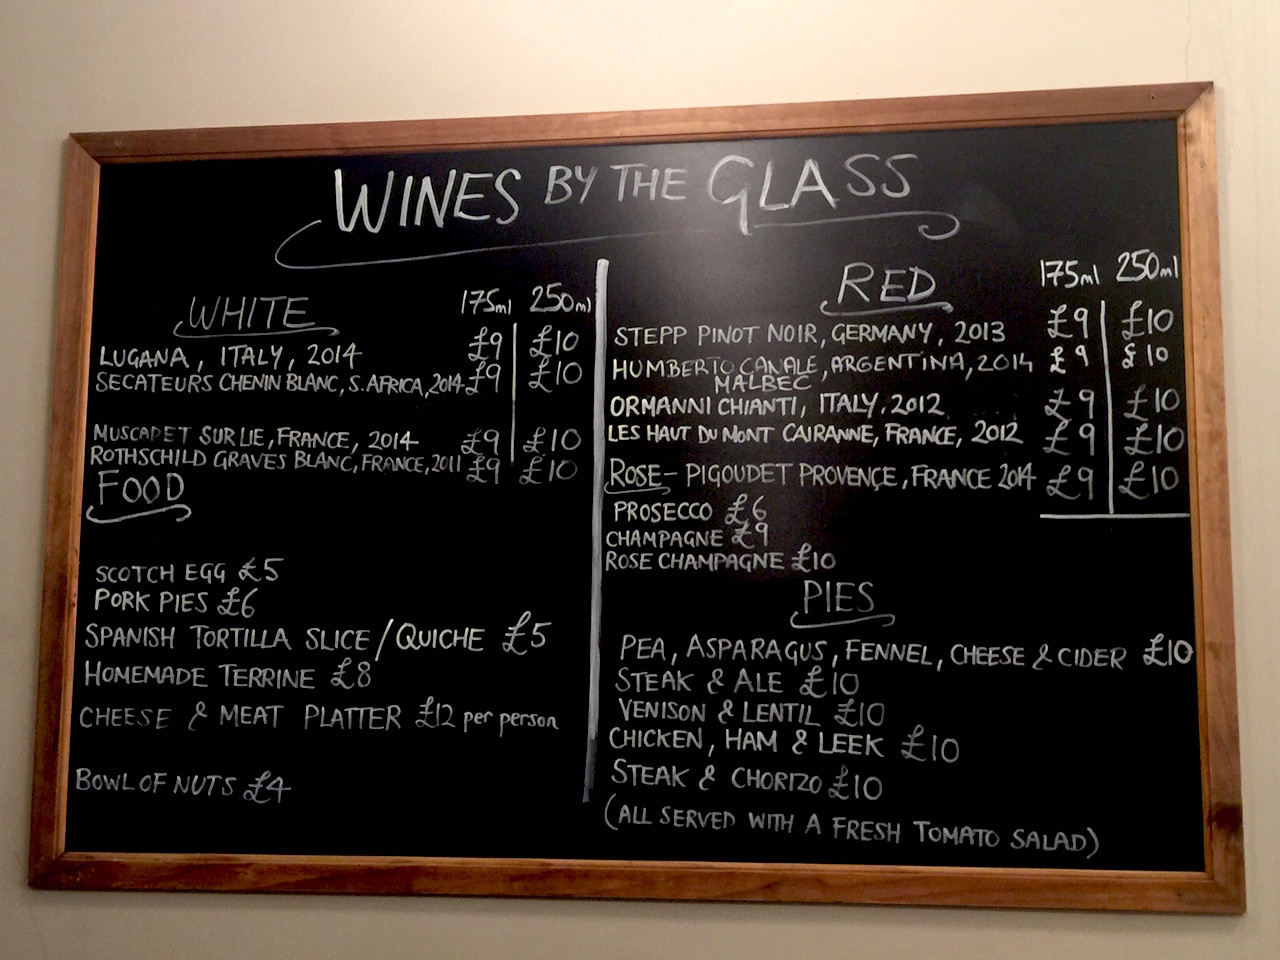 WINES BY THE GLASS
WHITE 175ml 250ml
LUGANA, ITALY, 2014 £9 £10
SECATEURS CHENIN BLANC, S. AFRICA, 2014 £9 £10
MUSCADET SUR LIE, FRANCE, 2014 £9 £10
ROTHSCHILD GRAVES BLANC, FRANCE, 2011 £9 £10
FOOD
SCOTCH EGG £5
PORK PIES £6
SPANISH TORTILLA SLICE / QUICHE £5
HOMEMADE TERRINE £8
CHEESE & MEAT PLATTER £12 per person
BOWL OF NUTS £4
RED 175ml 250ml
STEPP PINOT NOIR, GERMANY, 2013 £9 £10
HUMBERTO CANALE, ARGENTINA, 2014 £9 £10
MALBEC
ORMANNI CHIANTI, ITALY, 2012 £9 £10
LES HAUT DU MONT CAIRANNE, FRANCE, 2012 £9 £10
ROSE - PIGOUDET PROVENÇE, FRANCE 2014 £9 £10
PROSECCO £6
CHAMPAGNE £9
ROSE CHAMPAGNE £10
PIES
PEA, ASPARAGUS, FENNEL, CHEESE & CIDER £10
STEAK & ALE £10
VENISON & LENTIL £10
CHICKEN, HAM & LEEK £10
STEAK & CHORIZO £10
(ALL SERVED WITH A FRESH TOMATO SALAD)